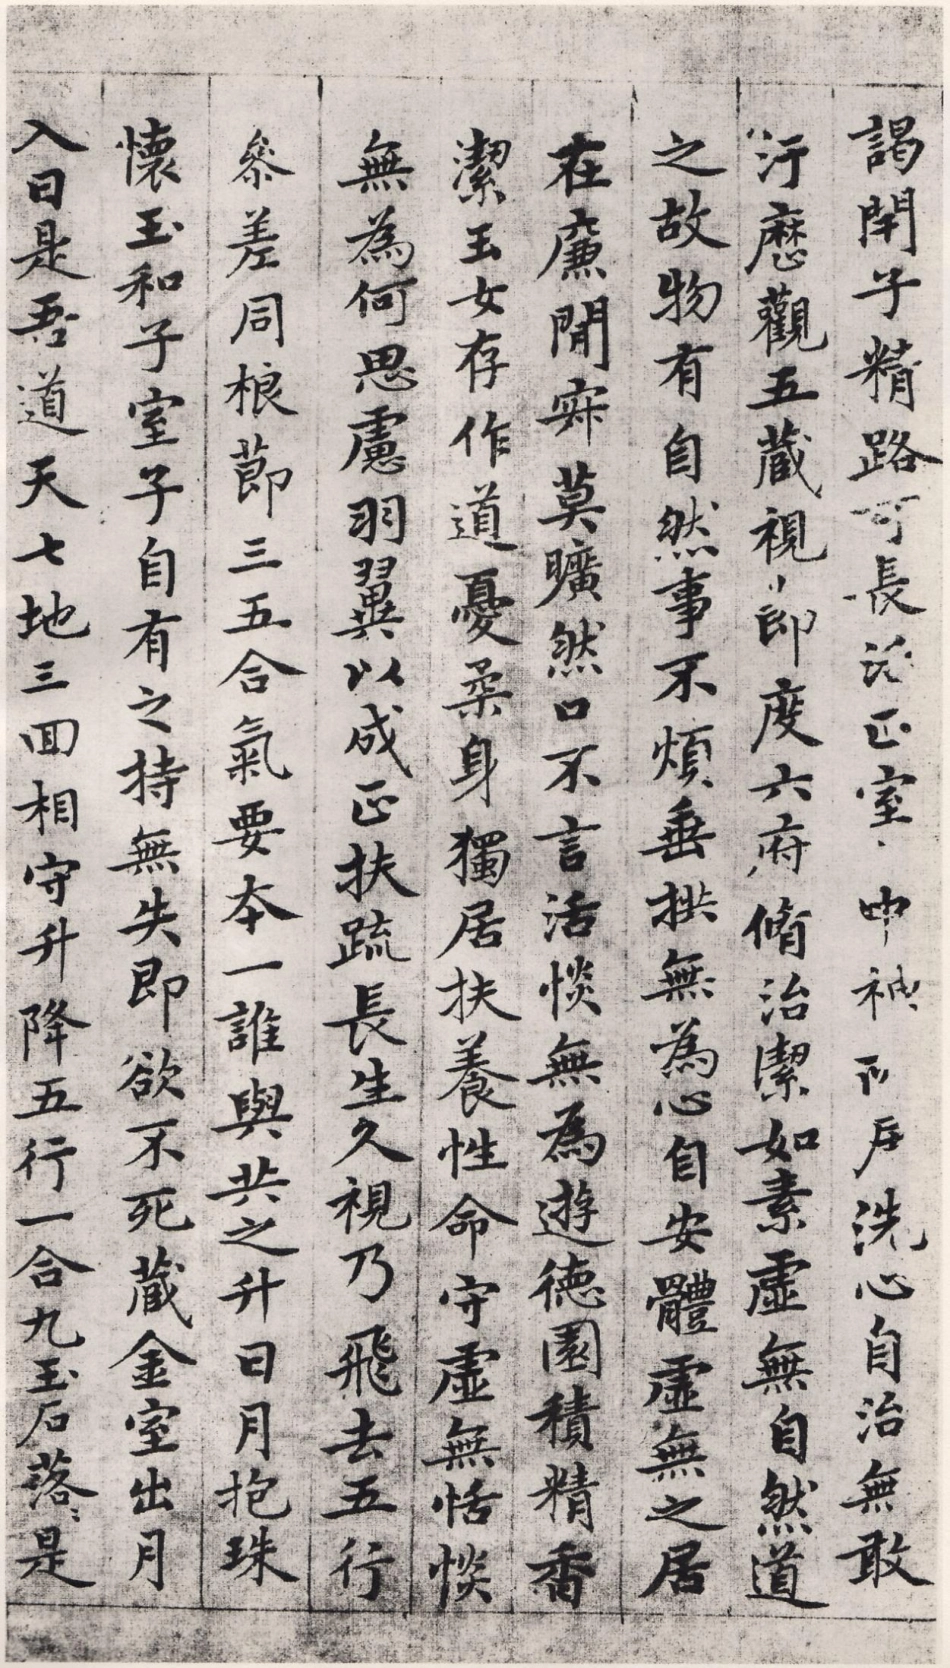 謁閇子精路可長活正室〻中神所居洗心自治無敢
汙歷觀五蔵視〻節度六府脩治潔如素虛無自然道
之故物有自然事不煩垂拱無為心自安體虛無之居
在廉閒寂莫曠然口不言活惔無為遊德園積精香
潔玉女存作道憂柔身獨居扶養性命守虛無恬惔
無為何思慮羽翼以成正扶疏長生久視乃飛去五行
參差同根節三五合氣要本一誰與共之升日月抱珠
懷玉和子室子自有之持無失即欲不死蔵金室出月
入日是吾道天七地三回相守升降五行一合九玉石落〻是